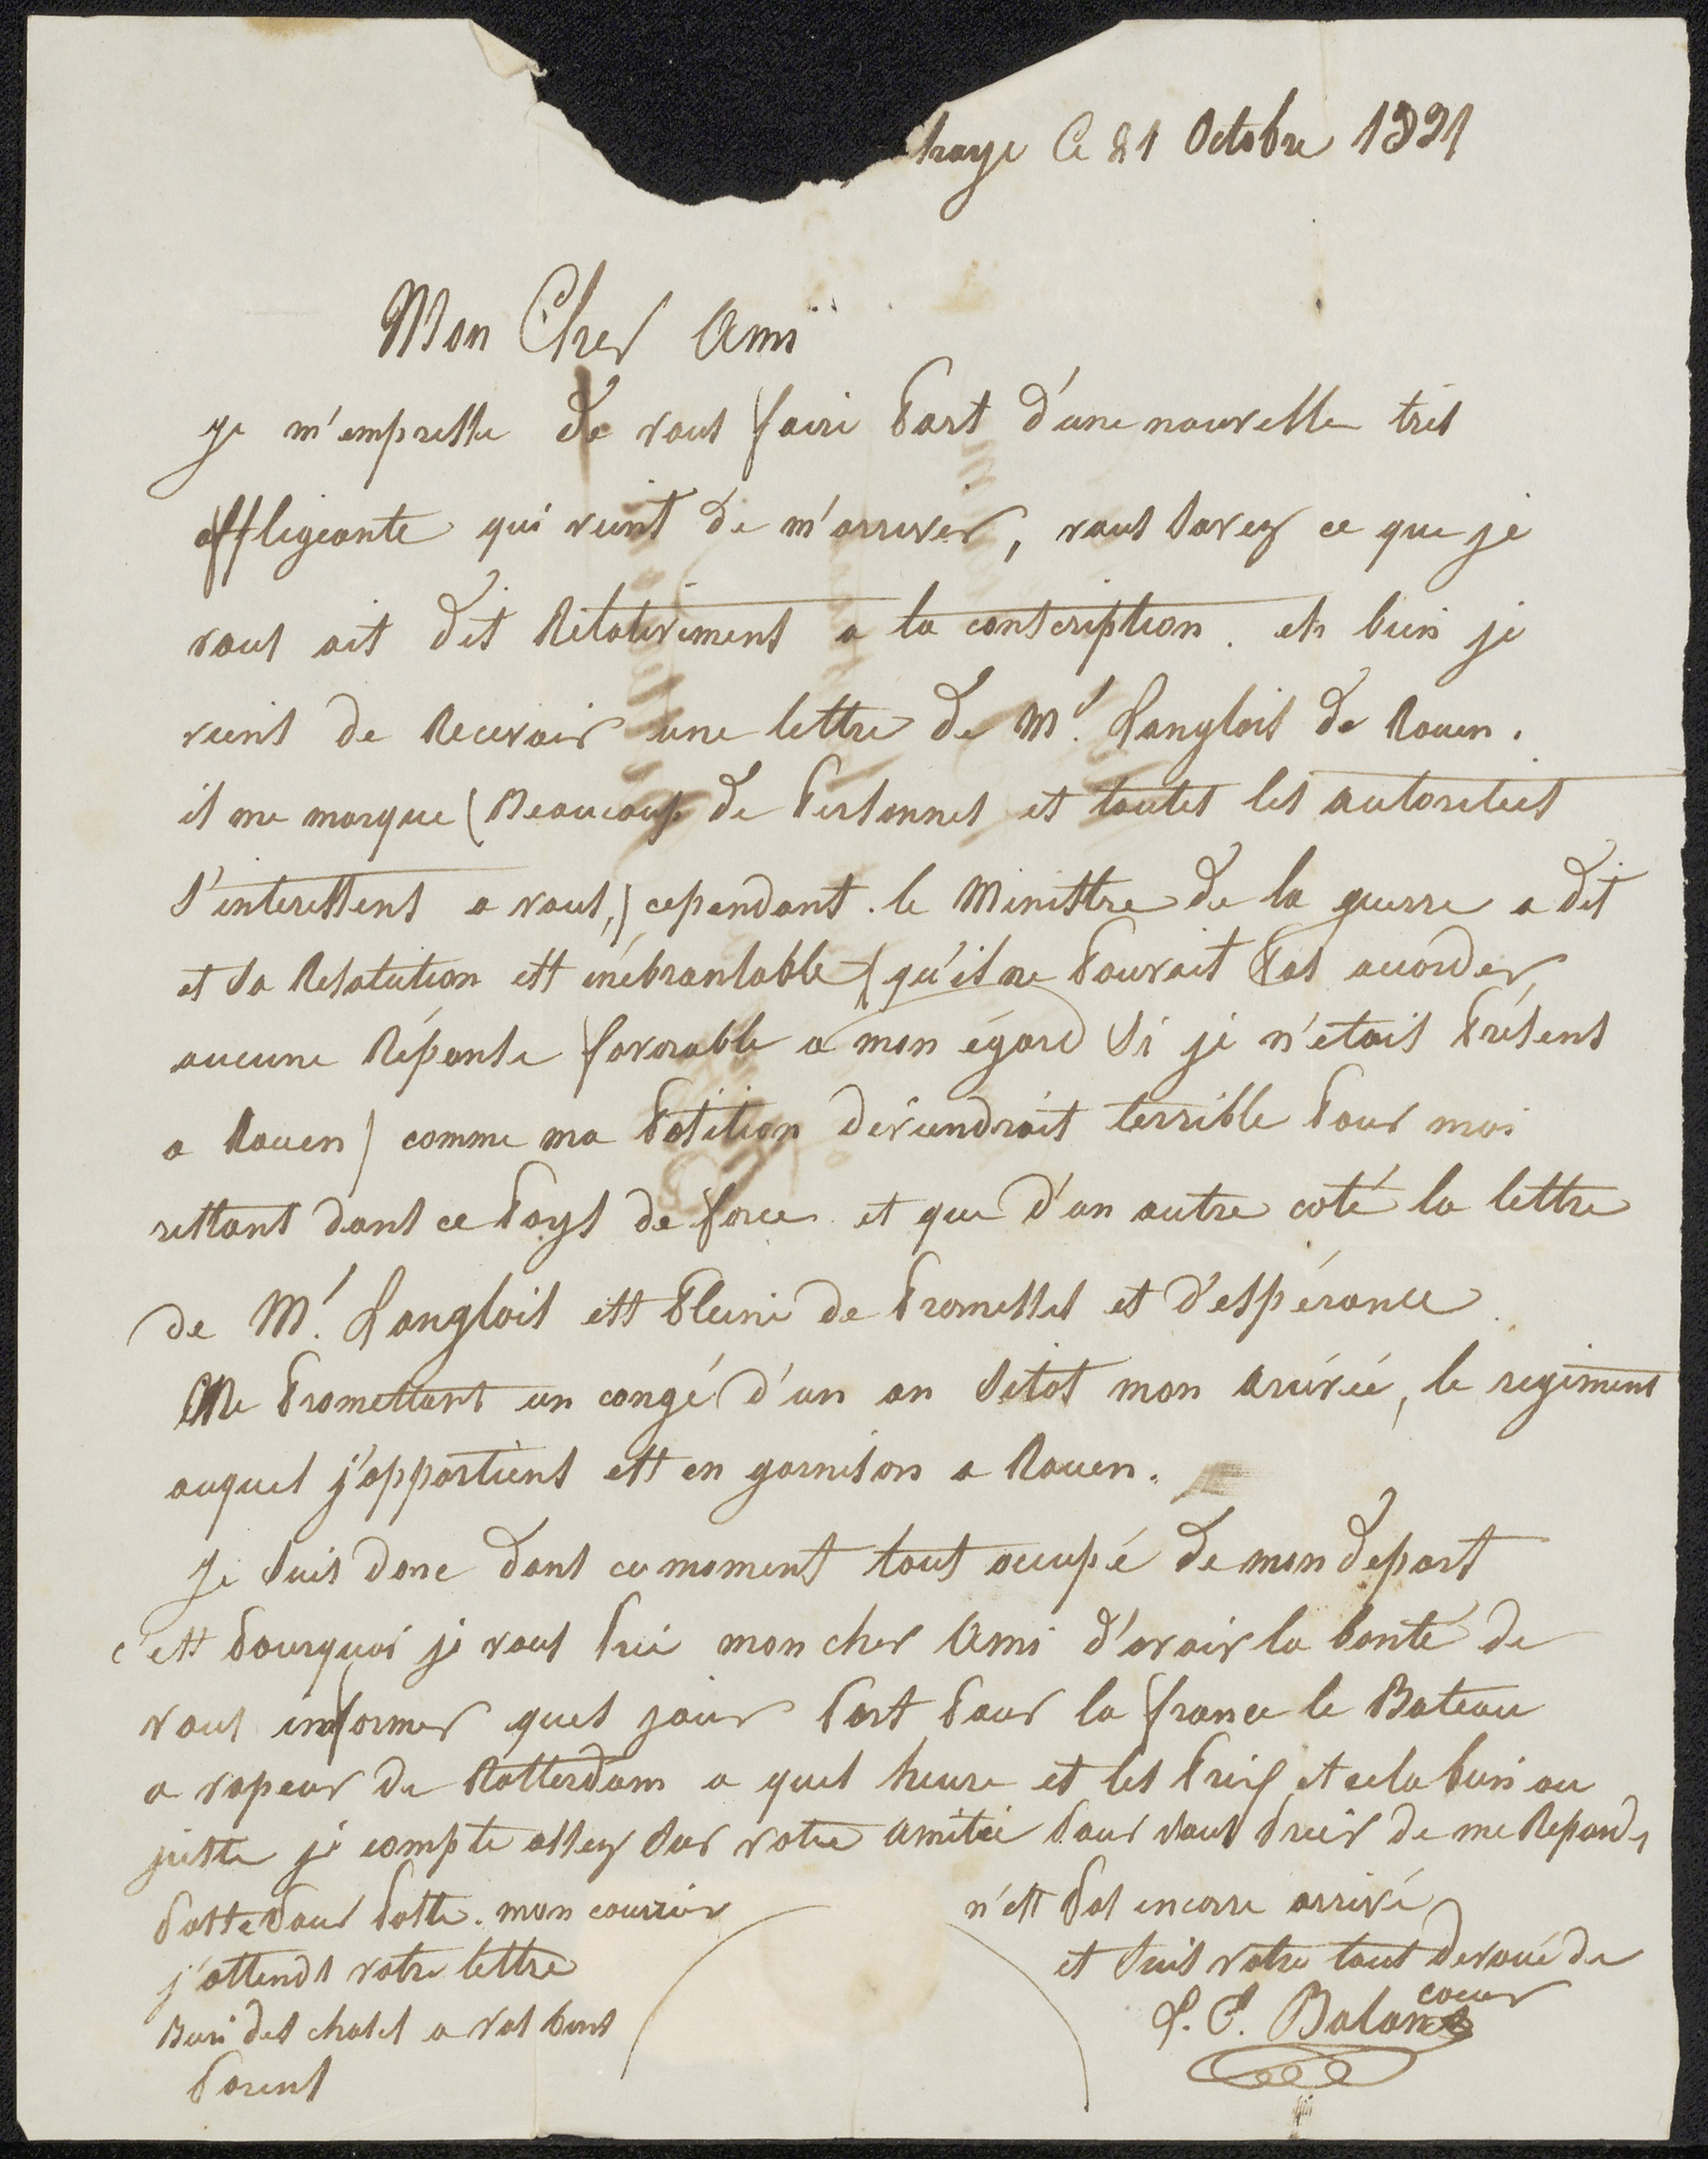 haye Ce 21 Octobre 1831
Mon Cher Ami
je m'empresse de vous faire Part d'une nouvelle tres
affligeante qui vient de m'arriver, vous savez ce que je
vous ait dit Relativement a la conscription. eh bien je
viens de Recevoir une lettre de Mr. Langlois de Rouen.
il me marque (Beaucoup de Personnes et toutes les autoritées
s'interessent a vous,) cependant. le Ministre de la guerre a dit
et sa Resolution est inébranlable (qu'il ne Pouvait Pas accorder
aucune Réponse favorable a mon égard Si je n'etais Présent
a Rouen) comme ma Position deviendrait terrible Pour moi
restant dans ce Pays de force et que d'un autre coté la lettre
de Mr. Langlois est Pleine de Promesses et d'espérance
Me Promettant un congé d'un an Sitot mon arrivée, le regiment
auquel j'appartiens est en garnison a Rouen.
Je Suis donc dans ce moment tout occupé de mon depart
c'est Pourquoi je vous Prie mon cher Ami d'avoir la bonté de
vous informer quel jour Part Pour la france le Bateau
a vapeur de Rotterdam a quel heure et les Prix et cela bien au
juste je compte assez Sur votre amitié Pour vous Prier de me Repond,
Poste Pour Poste. mon courrier n'est Pas encorre arrivé
j'attends votre lettre et Suis votre tout devoué de
coeur
Bien des choses a vos bons
Parens
L. P. Balan